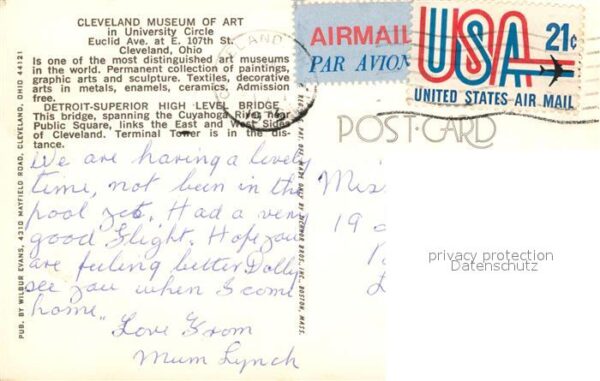 CLEVELAND MUSEUM OF ART
in University Circle
Euclid Ave. at E. 107th St.
Cleveland, Ohio
Is one of the most distinguished art museums
in the world. Permanent collection of paintings,
graphic arts and sculpture. Textiles, decorative
arts in metals, enamels, ceramics. Admission
free.
DETROIT-SUPERIOR HIGH LEVEL BRIDGE
This bridge, spanning the Cuyahoga River, near
Public Square, links the East and West Sides
of Cleveland. Terminal Tower is in the dis-
tance.
We are having a lovely
time, not been in the
pool yet. Had a very
good flight. Hope you
are feeling better Dolly
see you when I come
home."
Love From
Mum Lynch
PUB. BY WILBUR EVANS, 4310 MAYFIELD ROAD, CLEVELAND, OHIO 44121
MADE ONLY BY DEXTER BROS., INC., BOSTON, MASS.
AIRMAIL
PAR AVION
USA
21¢
UNITED STATES AIR MAIL
POST CARD
19
privacy protection
Datenschutz